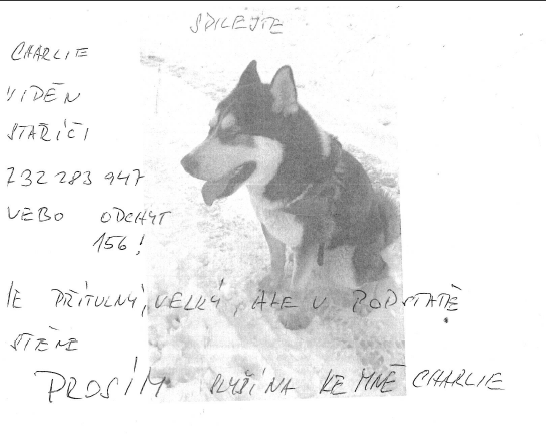 SDILEJTE
CHARLIE
VIDĚN
STAŘÍČI
732 283 947
NEBO ODCHYT
156!
JE PŘÍTULNÝ, VELKÝ, ALE V PODSTATĚ
ŠTĚNE
PROSÍM SLYŠÍ NA KE MNĚ CHARLIE